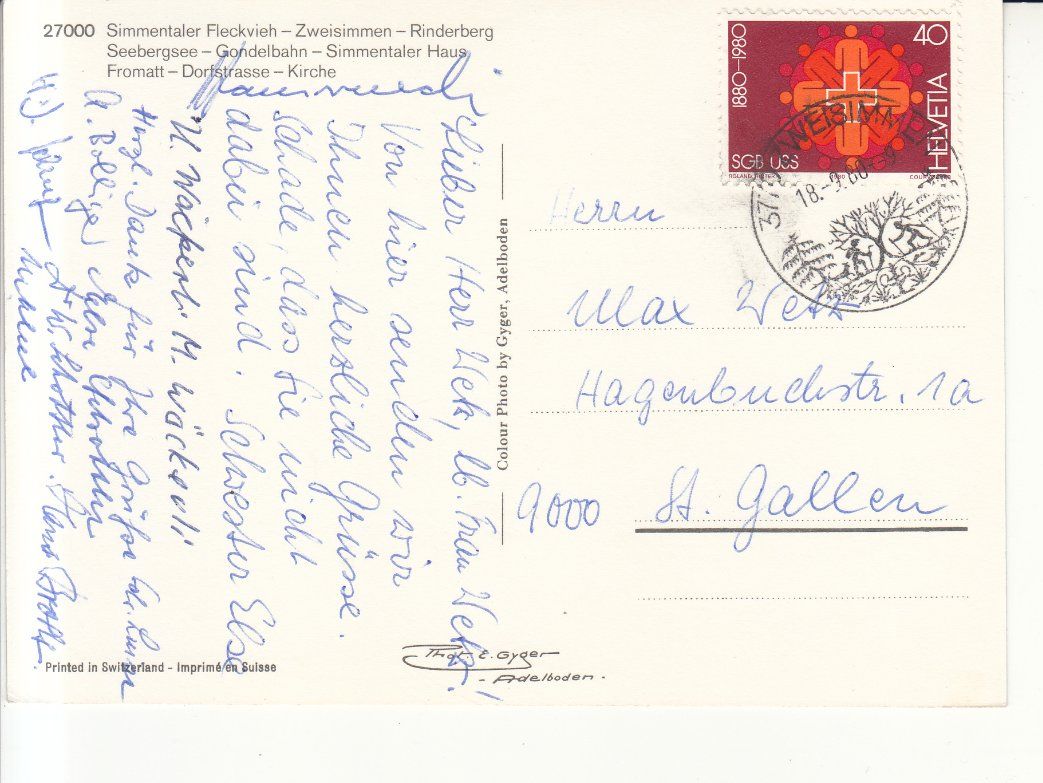 27000 Simmentaler Fleckvieh – Zweisimmen – Rinderberg
Seebergsee – Gondelbahn – Simmentaler Haus
Fromatt – Dorfstrasse – Kirche
Lieber Herr Wetz, lb. Frau Wetz!
Von hier senden wir
Ihnen herzliche Grüsse.
Schade, dass Sie nicht
dabei sind. Schwester Else
M. Wäckerli
Herzl. Dank für Ihre Grüsse
Colour Photo by Gyger, Adelboden
1880–1980
40
HELVETIA
SGB USS
ZWEISIMMEN
18.-9.80-9
Herrn
Max Wetz
Hagenbuchstr. 1a
9000 St. Gallen
Printed in Switzerland - Imprimé en Suisse
Phot. E. Gyger
- Adelboden -